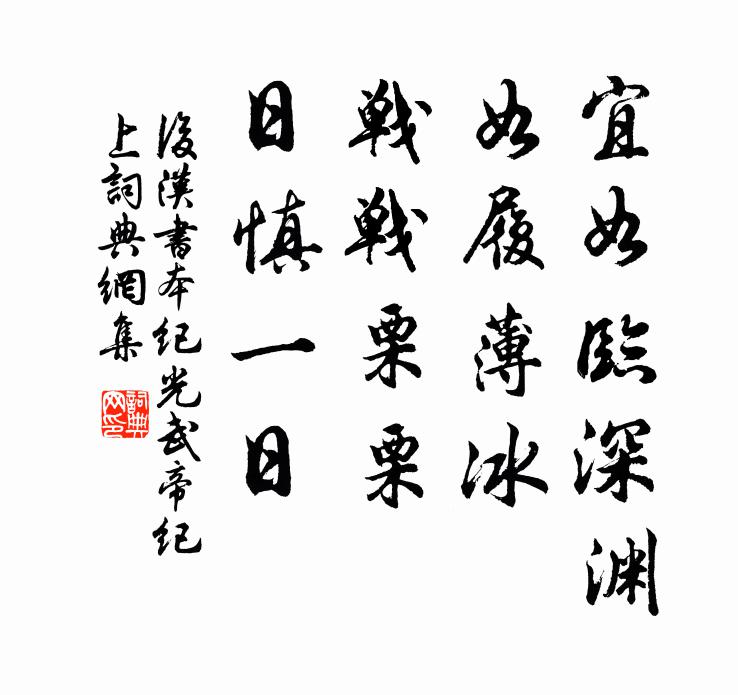 宜如臨深渊
如履薄冰
戦戦栗栗
日慎一日
後漢書本纪光武帝纪
上詞典網集
詞典
网印